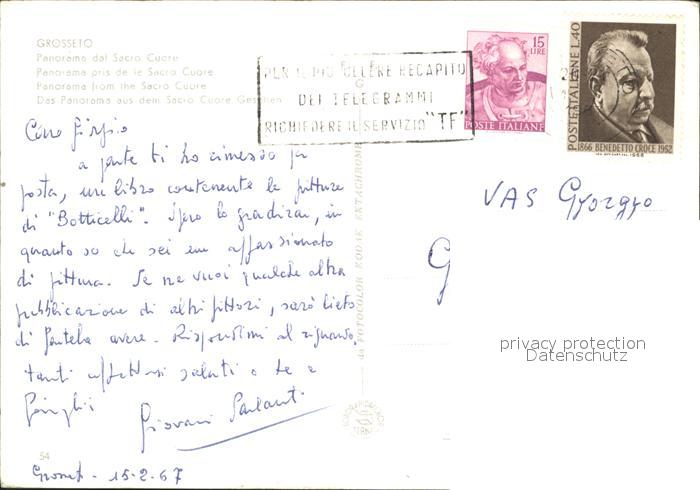 GROSSETO
Panorama dal Sacro Cuore
Panorama pris de le Sacro Cuore
Panorama from the Sacro Cuore
Das Panorama aus dem Sacro Cuore Gesehen
PER IL PIÙ CELERE RECAPITO
DEI TELEGRAMMI
RICHIEDERE IL SERVIZIO "TF"
15
LIRE
POSTE ITALIANE
POSTE ITALIANE L.40
1866 BENEDETTO CROCE 1952
Caro
a parte ti ho rimesso per
posta, un libro contenente le pitture
di "Botticelli". Spero lo gradirai, in
quanto so che sei un appassionato
di pittura. Se ne vuoi qualche altra
pubblicazione di altri pittori, sarò lieto
di fartela avere. Rispondimi al riguardo.
tanti affettuosi saluti a te e
Giovani
54
15-2-67
da FOTOCOLOR KODAK EKTACHROME
VAS Gyorgyo
G
privacy protection
Datenschutz